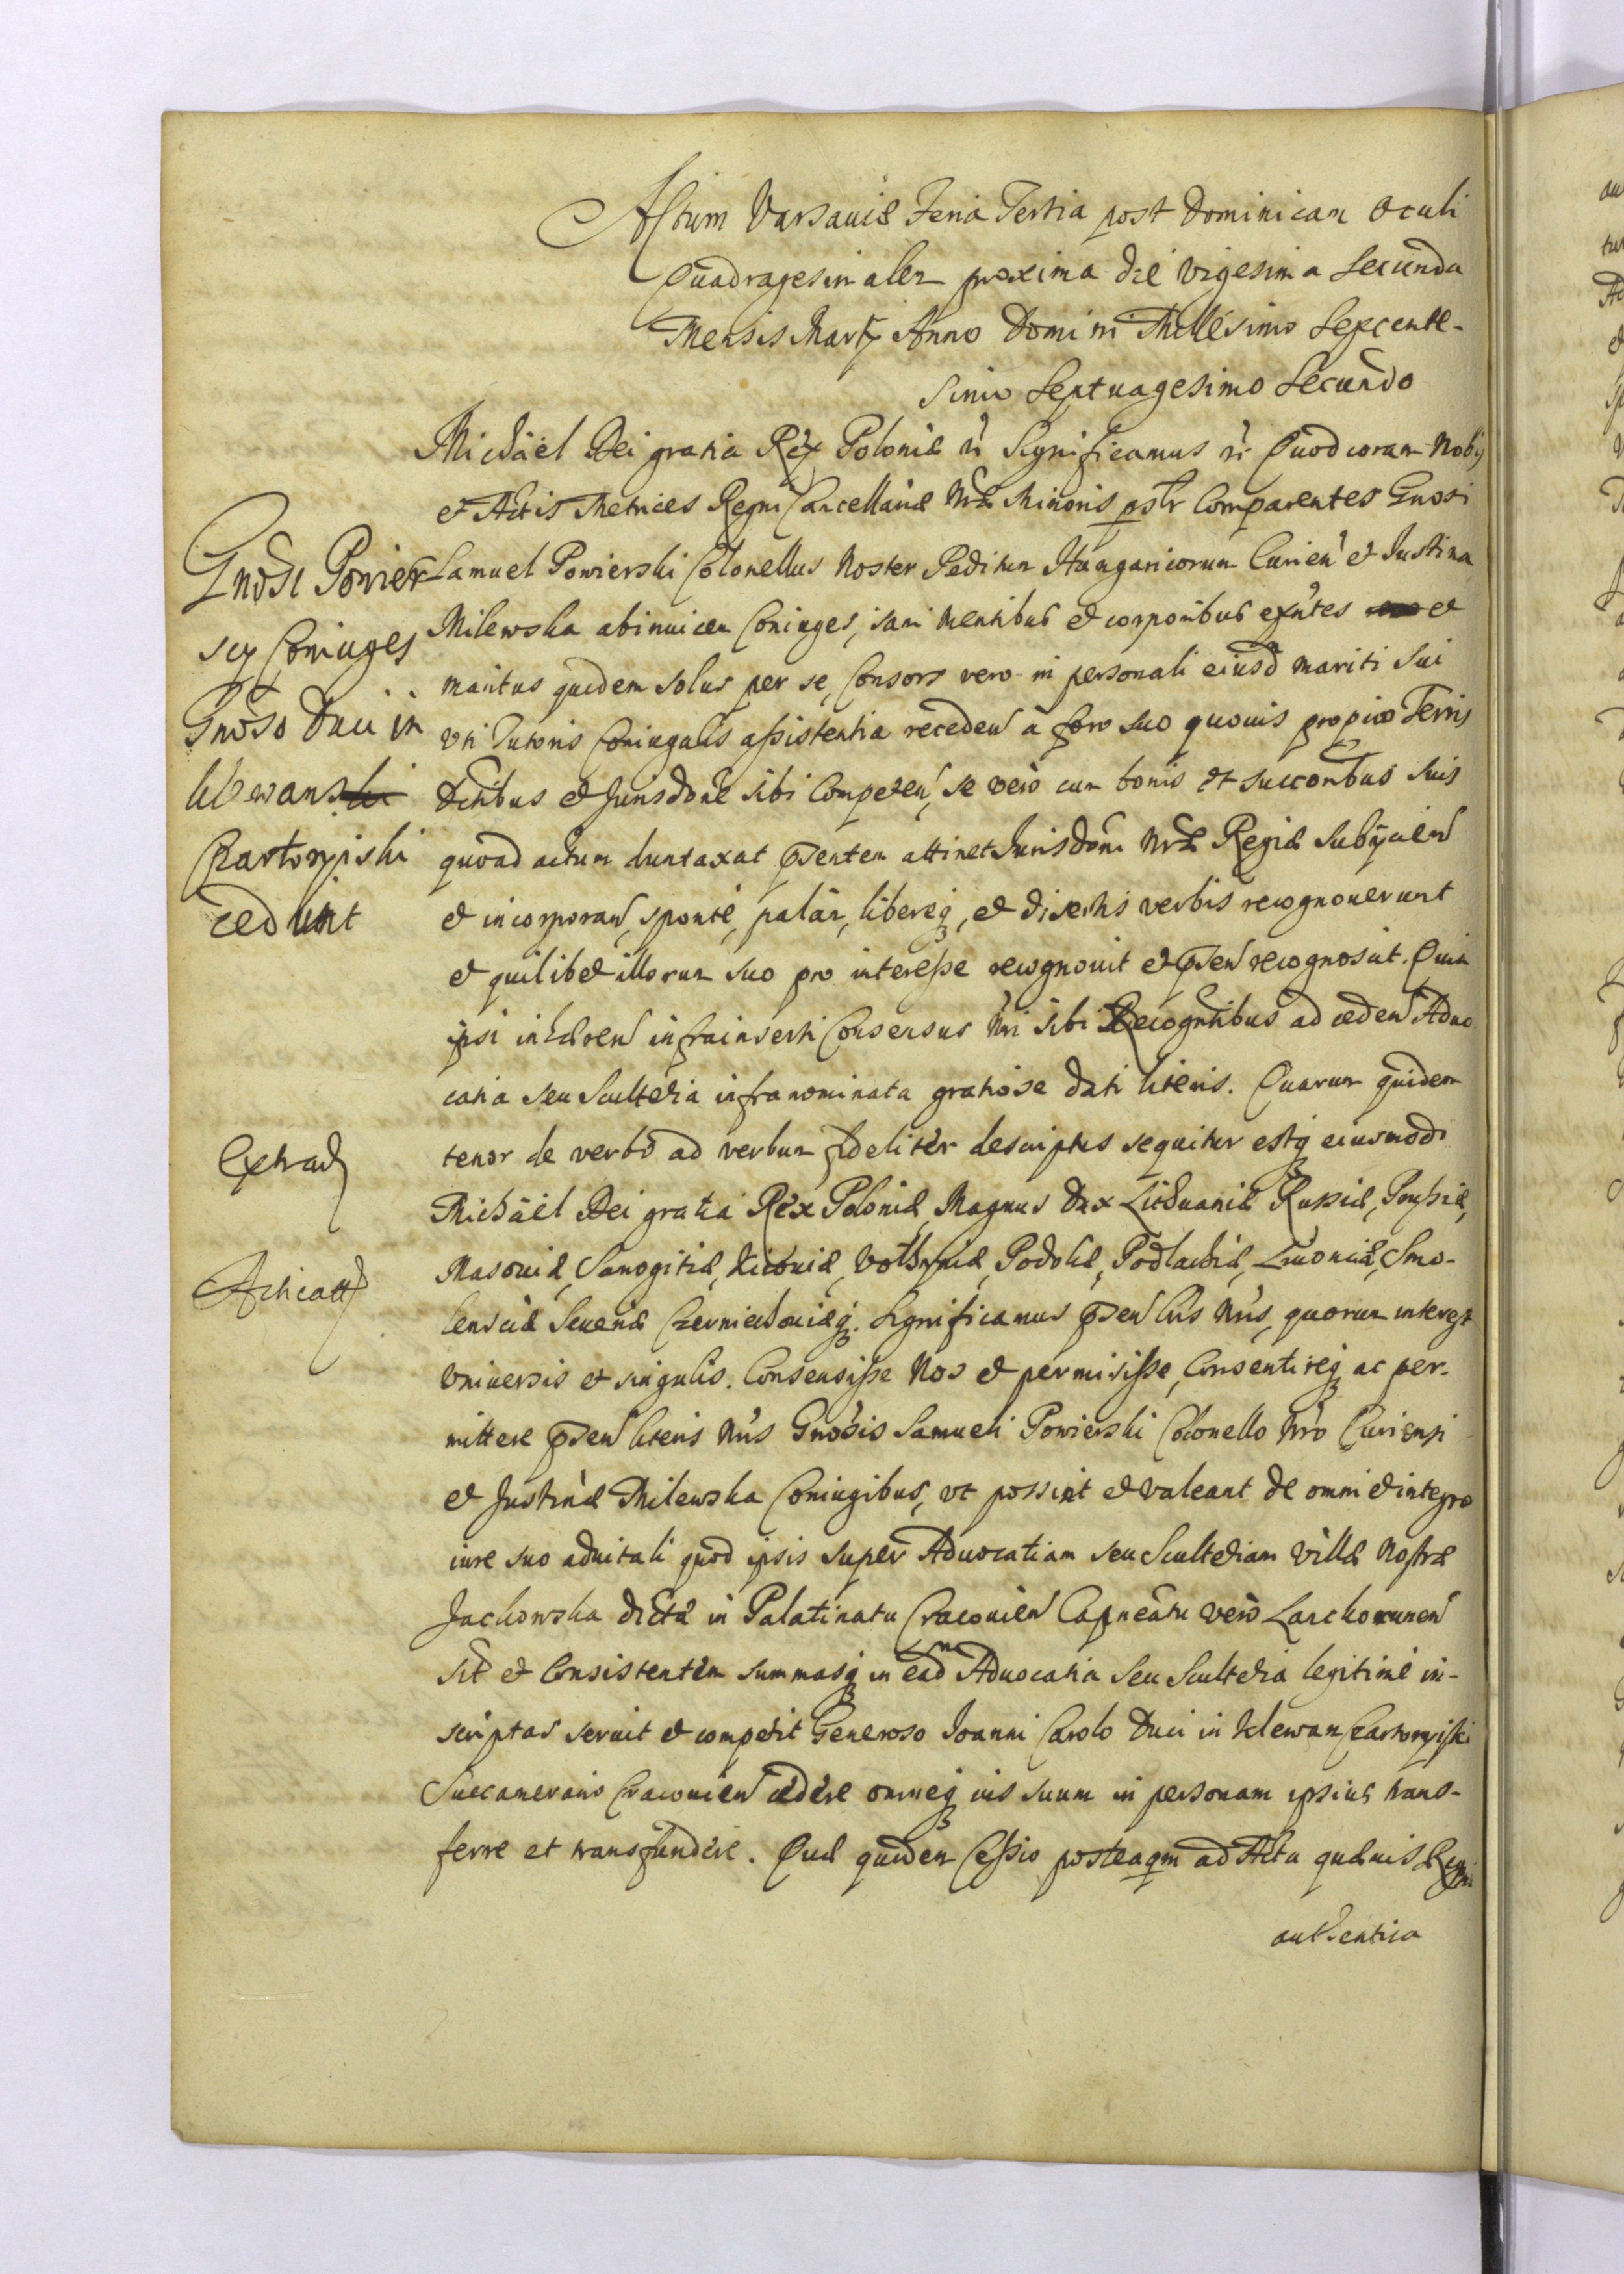 Actum Varsaviæ Feria Tertia post Dominicam Oculi
Quadragesimalem proxima die vigesima Secunda
Mensis Martij Anno Domini Millesimo Sexcente-
simo Septuagesimo Secundo
Michäel Dei gratia Rex Poloniæ &c Significamus &c Quod coram Nobis
et Actis Metrices Regni Cancellariæ Nræ Minoris pslr Comparentes Gnosi
Samuel Powierski Colonellus Noster Peditum Hungaricorum Curien et Justina
Milewska abinuicem Coniuges, sani mentibus et corporibus exntes et
maritus quidem solus per se, Consors vero in personali eiusd mariti sui
vti Tutoris Coniugalis assistentia receden à foro suo quouis proprio Terris
Dctibus et Jurisdone sibi Competen, se vero cum bonis et succoribus suis
quoad actum duntaxat psentem attinet Jurisdoni Nræ Regiæ Subijcien
et incorporan, sponte, palam, libereq, et disertis verbis recognouerunt
et quilibet illorum suo pro interesse recognouit et psen recognoscit. Quia
ipsi inhæren infrainserti Consensus Nri sibi Recogntibus ad ceden Advo
catia seu Scultetia infranominata gratiose dati literis. Quarum quidem
tenor de verbo ad verbum fideliter descriptus sequitur estq eiusmodi
Michäel Dei gratia Rex Poloniæ, Magnus Dux Lithuaniæ Russiæ, Prussiæ,
Masouiæ, Samogitiæ, Kiiouiæ, Volhyniæ, Podoliæ, Podlachiæ, Liuoniæ, Smo-
lensciæ Seueriæ Czerniechouiæq. Significamus psen lris Nris, quorum interest
Vniuersis et singulis. Consensisse Nos et permisisse, Consentireq ac per-
mittere psen literis Nris Gnosis Samueli Powierski Colonello Nro Curiensi
et Justinæ Milewska Coniugibus, vt possint et valeant de omni et integro
iure suo aduitali quod ipsis super Aduocatiam seu Scultetiam villæ Nostræ
Jachowska dictæ in Palatinatu Cracouien Capneatu vero Lanckorunen
sit et Consistentem summasq in ead Aduocatia seu Scultetia legitime in-
scriptas seruit et competit Generoso Joanni Carolo Duci in Klewan Czartoryiski
Succamerario Cracouien cedere omneq ius suum in personam ipsius trans-
ferre et transfundere. Quæ quidem Cessio posteaqm ad Acta quæuis Regni
authentica
Gnosi Powier
scy Coniuges
Gnoso Duci in
klewans
Czartoryiski
cedunt
Extrad